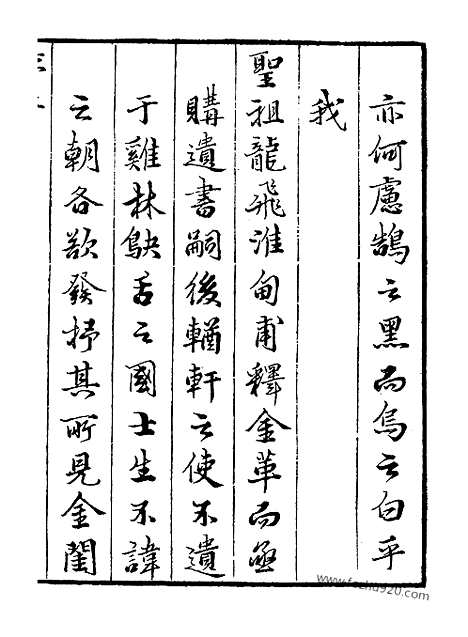 亦何慮鵠之黑而烏之白乎
我
聖祖龍飛淮甸甫釋金革而亟
購遺書嗣後輶軒之使不遺
于雞林鴃舌之國士生不諱
之朝各欲發抒其所見金閨
www.fozhu920.com